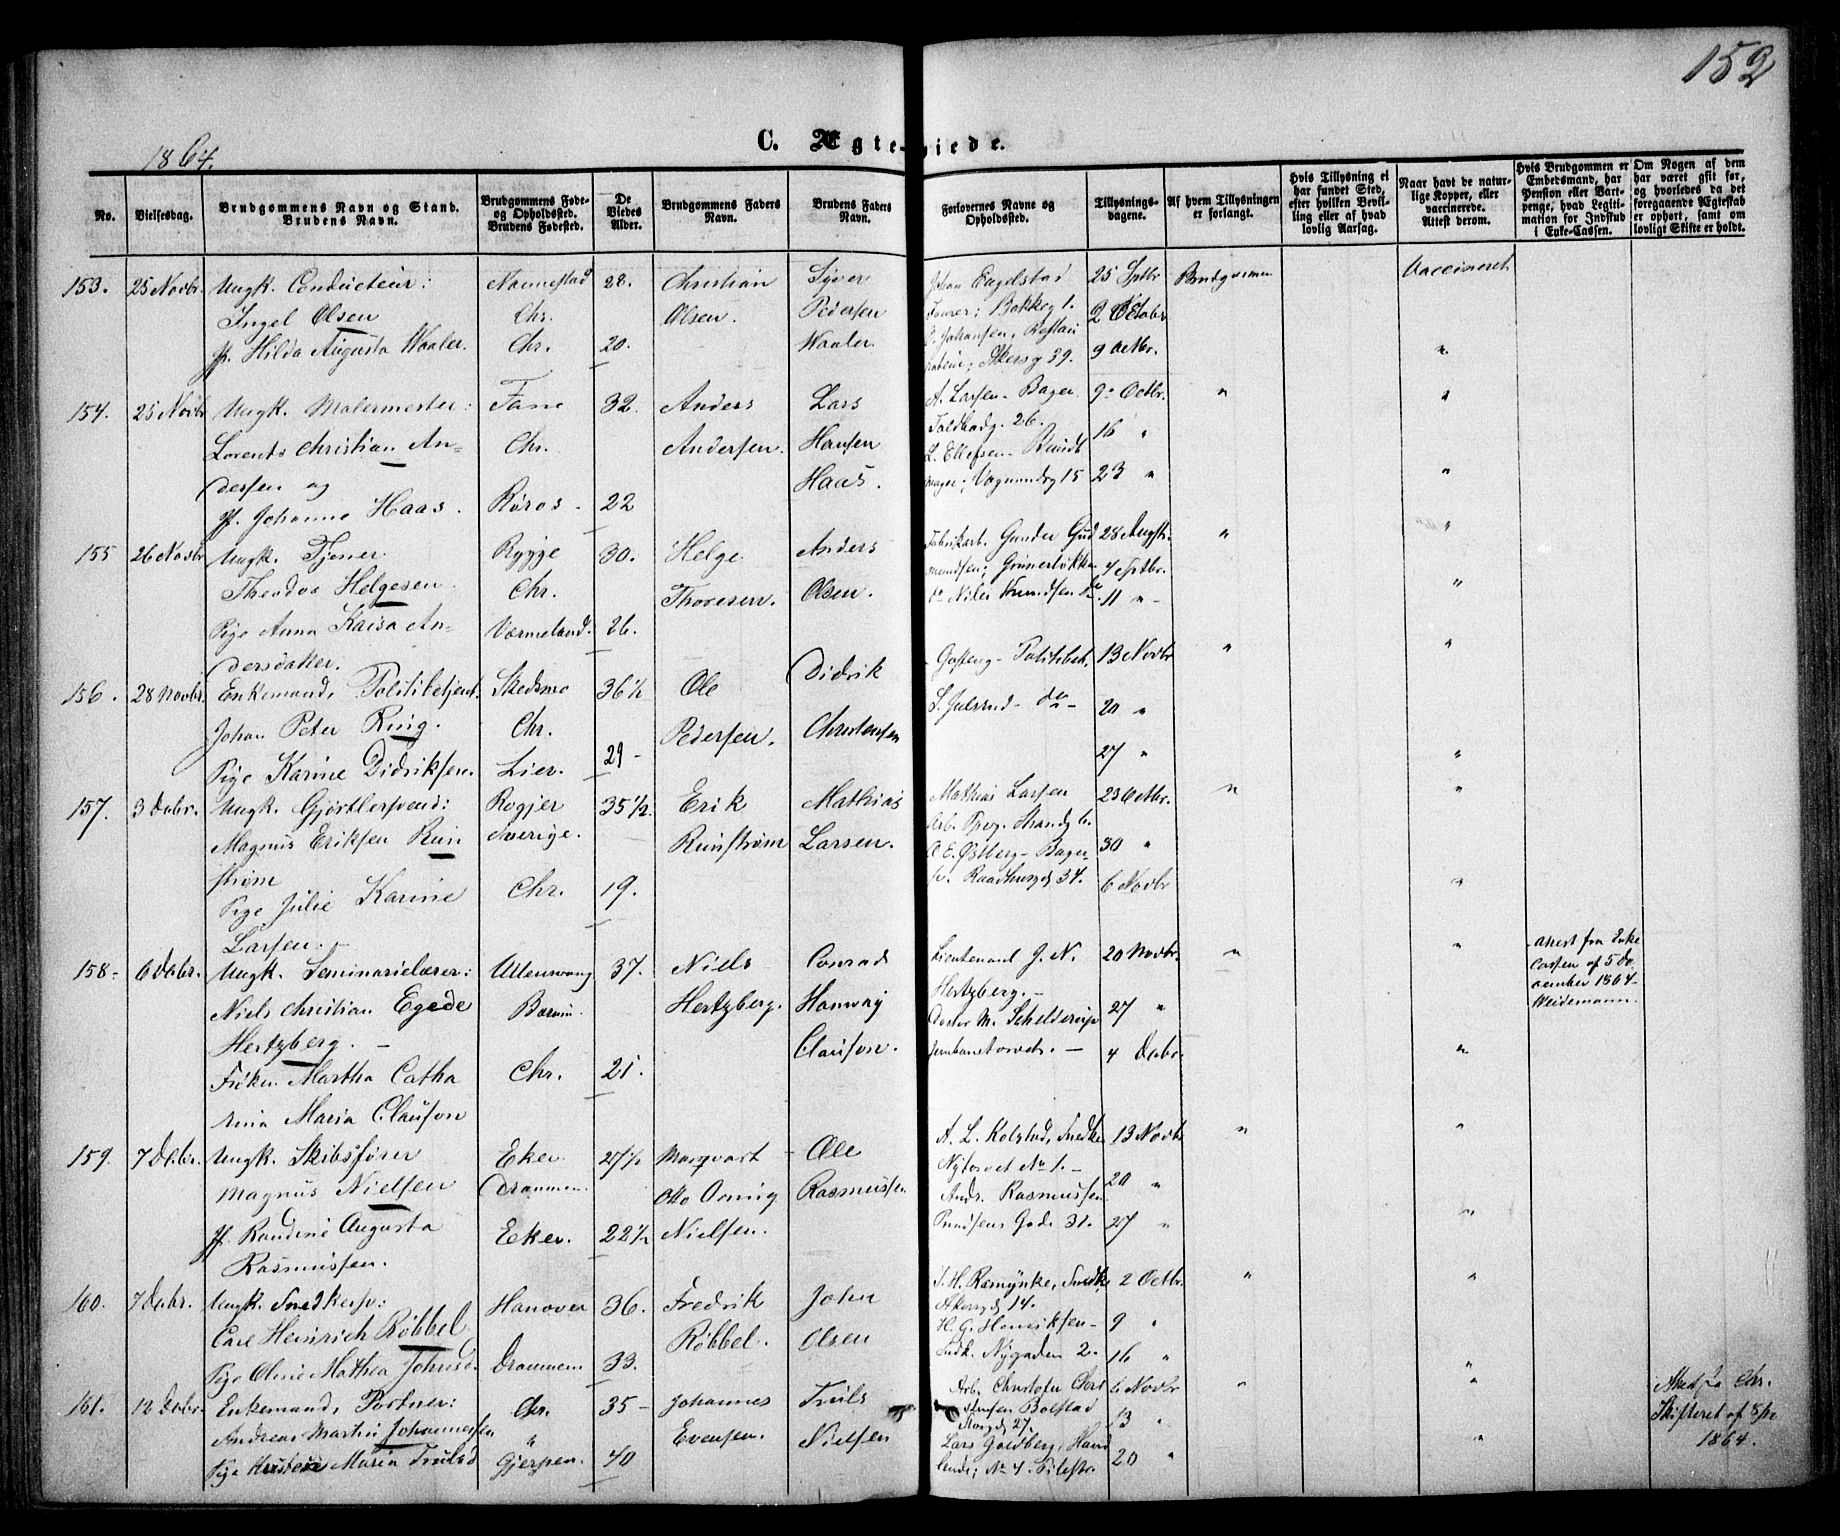 152
1864.
C. Ægteviede.
No.
Vielsesdag.
Brudgommens Navn og Stand.
Brudens Navn.
Brudgommens Føde-
og Opholdssted.
Brudens Fødested.
De
Viedes
Alder.
Brudgommens Faders
Navn.
Brudens Faders
Navn.
Forlovernes Navne og
Opholdssted.
Tillysnings-
dagene.
Af hvem Tillysningen
er forlangt.
Hvis Tillysning ei
har fundet Sted,
efter hvilken Bevil-
ling eller af hvad
lovlig Aarsag.
Naar havt de natur-
lige Kopper, eller
vaccinerede.
Attest derom.
Hvis Brudgommen er
Embedsmand, har
Pension eller Vart-
penge, hvad Legiti-
mation for Indskud
i Enke-Cassen.
Om Nogen af dem
har været gift før,
og hvorledes da det
foregaaende Ægteskab
er ophørt, samt om
lovligt Skifte er holdt.
153. 25 Novbr. Ungk. Conducteur: Nannestad 28. Christian Syver Johan Engelstad 25 Sptbr Brudgommen Vaccineret
Ingel Olsen Chr. Olsen. Pedersen Bakkeg 1. 2 Octobr
P. Hilda Augusta Waaler. Chr. 20. Waaler. Johansen, Akersg 39. 9 Octbr. "
154. 25 Novbr Ungk. Malermester: Fane 32. Anders Lars A. Larsen Bager 9 Octbr. " "
Lorents Christian An- Chr. Andersen. Hansen Toldbodg. 26. 16 "
dersen og Haas. L. Ellefsen 23 " "
Jf. Johanne Haas. Røros 22
155 26 Novbr Ungk. Tjener Rygge 30. Helge Anders Fabrikarb. Gunder Gud 28 Augst. " "
Theodor Helgesen. Chr. Thoresen. Olsen. mundsen; Grünerløkka 4 Sptbr.
Pige Anna Kaisa An- Værmeland. 26. Nils do. 11 " "
dersdatter.
156. 28 Novbr. Enkemand, Politibetjent Skedsmo 36½ Ole Didrik Politibet. 13 Novbr " "
Johan Peter Ring. Chr. Pedersen. Christensen S. Julsrud do 20 "
Pige Karine Didriksen. Lier. 29 27 " "
157. 3 Dcbr. Ungk. Gjørtlersvend: 35½. Erik Mathias Mathias Larsen 23 Octbr. " "
Magnus Eriksen Run Sverige. Runstrøm Larsen. Arb. 30 "
strøm
Pige Julie Karine Chr. 19. Raadhusgd 34. 6 Novbr "
Larsen.
158. 6 Dcbr. Ungk. Seminarielærer: Ullensvang 37. Niels Conrad Lieutenant G. N. 20 Novbr. " " Attest fra Enke
Niels Christian Egede Bærum. Hertzberg. Hanway Hertzberg. Cassen af 5 De
Hertzberg. Clauson. Doctor M. Schelderup 27 " cember 1864
Frøken Martha Catha Chr. 21. Jernbanetorvet. 4 Dcbr. " Weidemann.
rina Maria Clauson
159. 7 Dcbr. Ungk. Skibsfører Eker. 27½ Marqvart Ole A. L. Kolstad, Snedker 13 Novbr " "
Magnus Nielsen Drammen. Otto Orning Rasmussen Nytorvet No 1. 20 "
Jf. Randine Augusta Eker. 22½ Nielsen. Andr. Rasmussen 27 " "
Rasmussen. Gade 31.
160. 7 Dcbr. Ungk. Snedkersv: Hanover 36. Fredrik John Snedk. 2 Octbr. " "
Carl Heinrich Röbbel Röbbel. Olsen Akersgd 14. 9 "
Pige Oline Mathea Johnsd. Drammen 33. H. G. Henriksen 16 " "
Nygaden 2.
161. 12 Dcbr. Enkemand, Portner: Chr. 35 Johannes Truls Arb. Christofer 6 Novbr " " Attest fra Chr.
Andreas Martin Johannessen " Evensen. Nielsen Bolstad 13 " Skifteret af 8/12
Storgd 27. 1864.
Pige Maria Trulsd Gjerpen. 40 Lars Goldberg, 20 " "
No 4.